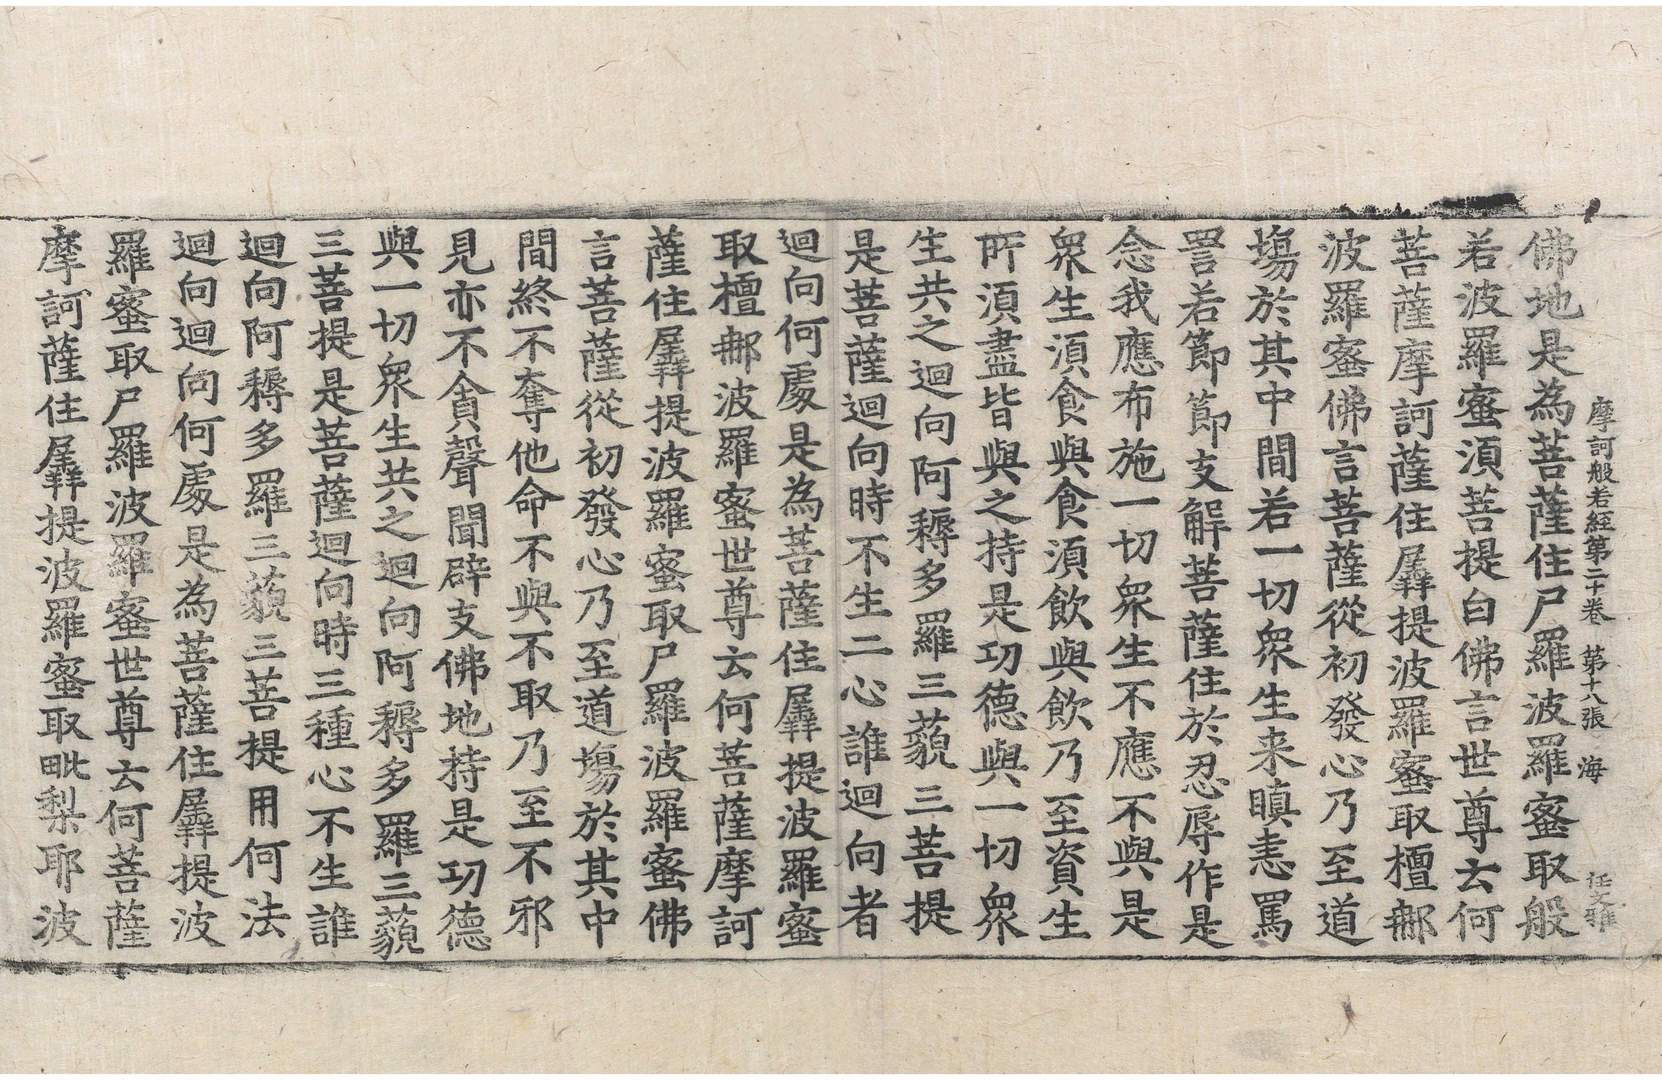 摩訶般若經第二十卷 第十八張 海 任文雅
佛地是為菩薩住尸羅波羅蜜取般
若波羅蜜湏菩提白佛言世尊云何
菩薩摩訶薩住羼提波羅蜜取檀𨚗
波羅蜜佛言菩薩從初發心乃至道
塲於其中間若一切衆生来瞋恚罵
詈若節節支解菩薩住於忍辱作是
念我應布施一切衆生不應不與是
衆生湏食與食湏飲與飲乃至資生
所湏盡皆與之持是功德與一切衆
生共之迴向阿耨多羅三藐三菩提
是菩薩迴向時不生二心誰迴向者
迴向何處是為菩薩住羼提波羅蜜
取檀𨚗波羅蜜世尊云何菩薩摩訶
薩住羼提波羅蜜取尸羅波羅蜜佛
言菩薩從初發心乃至道塲於其中
間終不奪他命不與不取乃至不邪
見亦不貪聲聞辟支佛地持是功德
與一切衆生共之迴向阿耨多羅三藐
三菩提是菩薩迴向時三種心不生誰
迴向阿耨多羅三藐三菩提用何法
迴向迴向何處是為菩薩住羼提波
羅蜜取尸羅波羅蜜世尊云何菩薩
摩訶薩住羼提波羅蜜取毗梨耶波